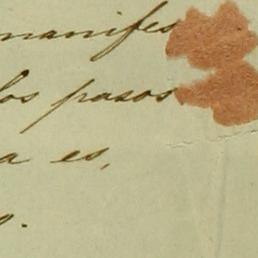 manifes
los pasos
a es,
o.